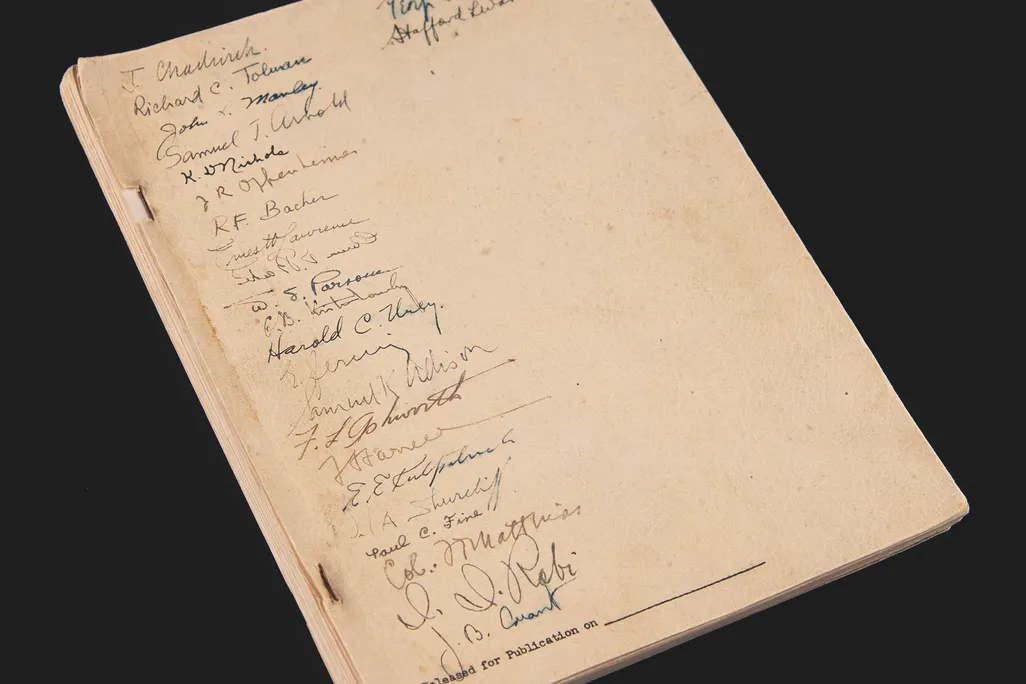 Stafford
J. Chadwick
Richard C. Tolman
John H. Manley
Samuel T. Arnold
K. D Nichols
J R Oppenheimer
R.F. Bacher
Ernest Lawrence
W. S. Parsons
G.B.
Harold C. Urey
E. Fermi
Samuel K Allison
F. L Ashworth
E. E Kirkpatrick
Paul C. Fine
Col. Matthias
I. I. Rabi
J. B. Conant
Released for Publication on